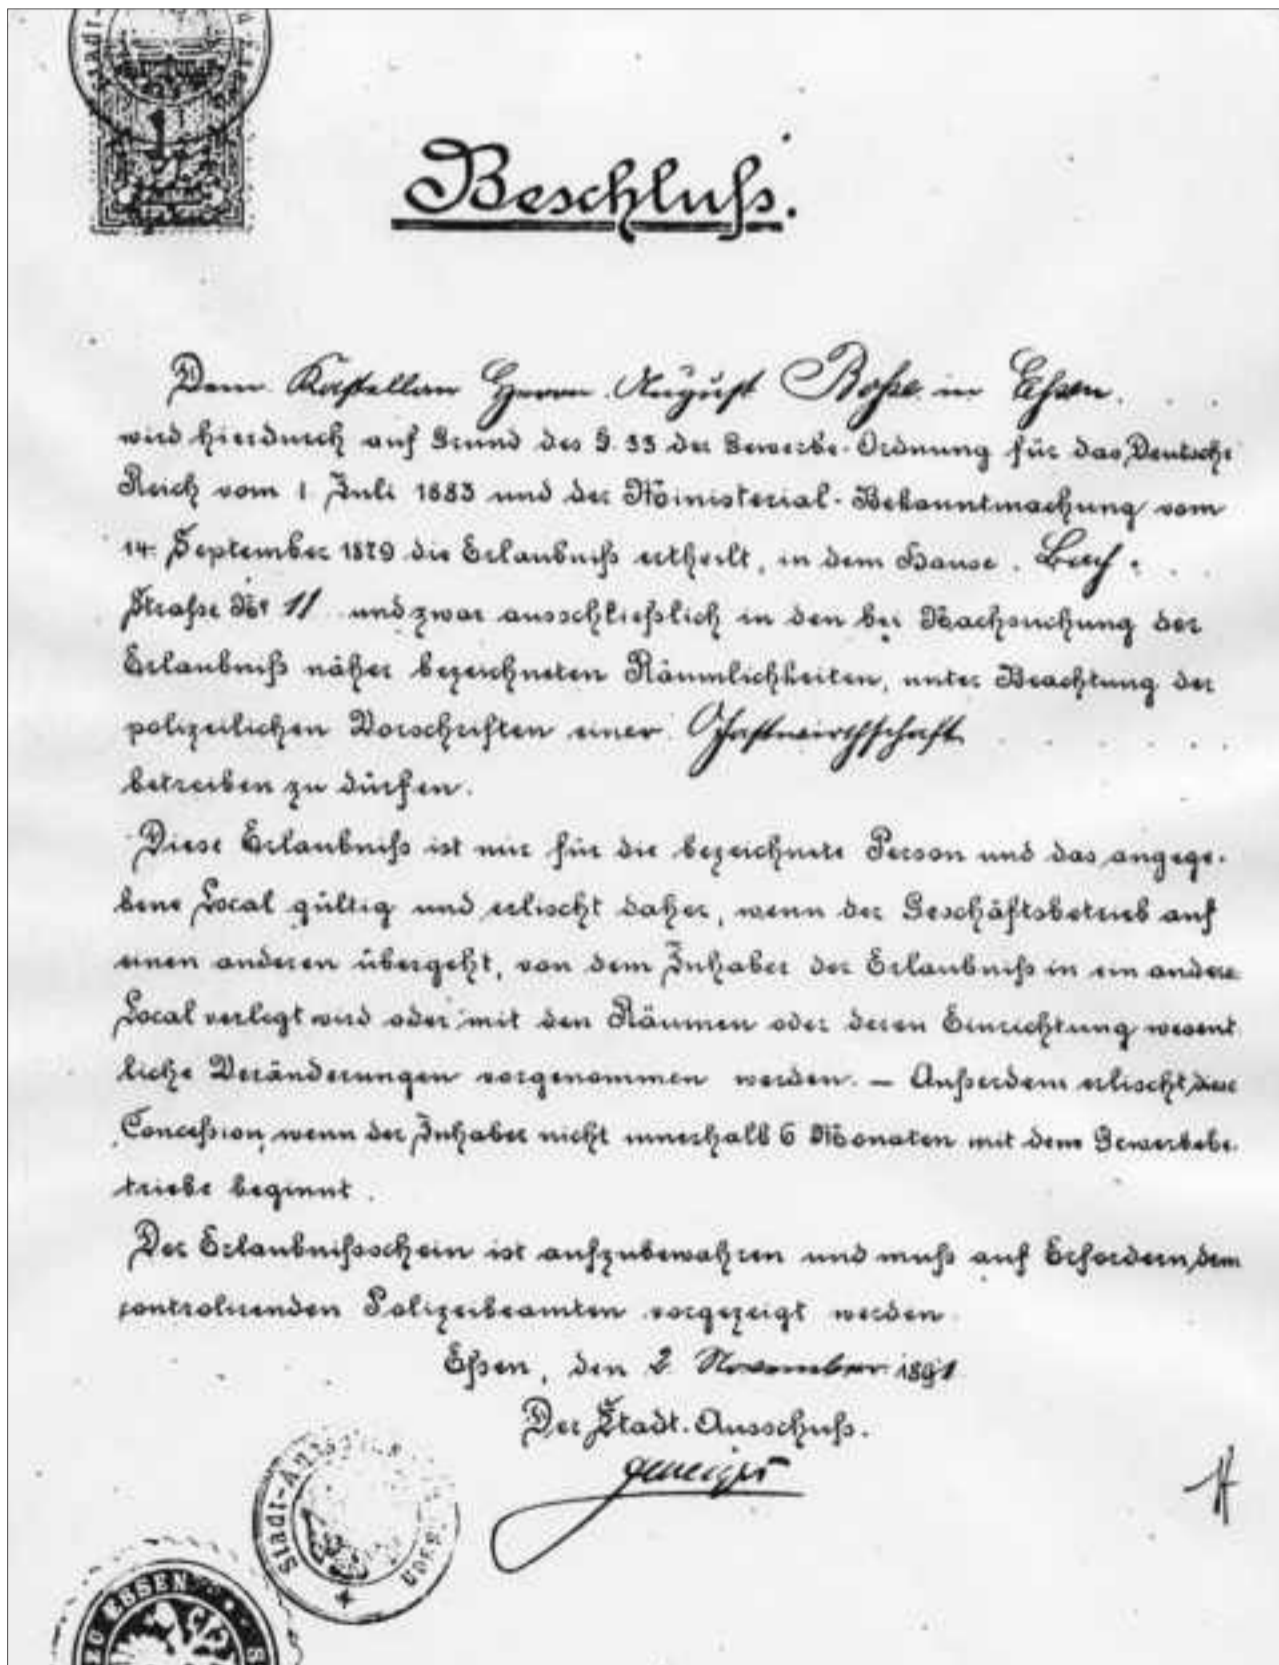 Beschluß.
Dem Kastellan Herrn August Bosse in Essen.
wird hierdurch auf Grund des §. 33 der Gewerbe-Ordnung für das Deutsche
Reich vom 1 Juli 1883 und der Ministerial-Bekanntmachung vom
14. September 1879 die Erlaubniß ertheilt, in dem Hause Bach-
Straße No 11 und zwar ausschließlich in den bei Nachsuchung der
Erlaubniß näher bezeichneten Räumlichkeiten, unter Beachtung der
polizeilichen Vorschriften einer Gastwirthschaft
betreiben zu dürfen.
Diese Erlaubniß ist nur für die bezeichnete Person und das angege-
bene Local gültig und erlischt daher, wenn der Geschäftsbetrieb auf
einen anderen übergeht, von dem Inhaber der Erlaubniß in ein andere
Local verlegt wird oder mit den Räumen oder deren Einrichtung wesent
liche Veränderungen vorgenommen werden. — Außerdem erlischt diese
Concession, wenn der Inhaber nicht innerhalb 6 Monaten mit dem Gewerbebe-
triebe beginnt.
Der Erlaubnißschein ist aufzubewahren und muß auf Erfordern dem
controlirenden Polizeibeamten vorgezeigt werden
Essen, den 2 November 1891
Der Stadt-Ausschuß.
Stadt-Ausschuss
Essen
ZU ESSEN